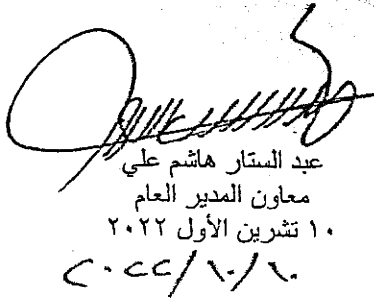 عبد الستار هاشم علي
معاون المدير العام
١٠ تشرين الأول ٢٠٢٢
٢٠٢٢/١٠/١٠